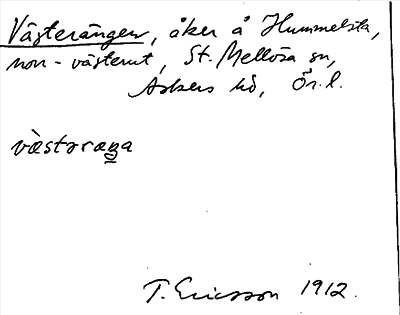 Västerängen, åker å Hummelsta,
norr-västerut, St. Mellösa sn,
Askers hd, Ör. l.
T. Ericsson 1912.